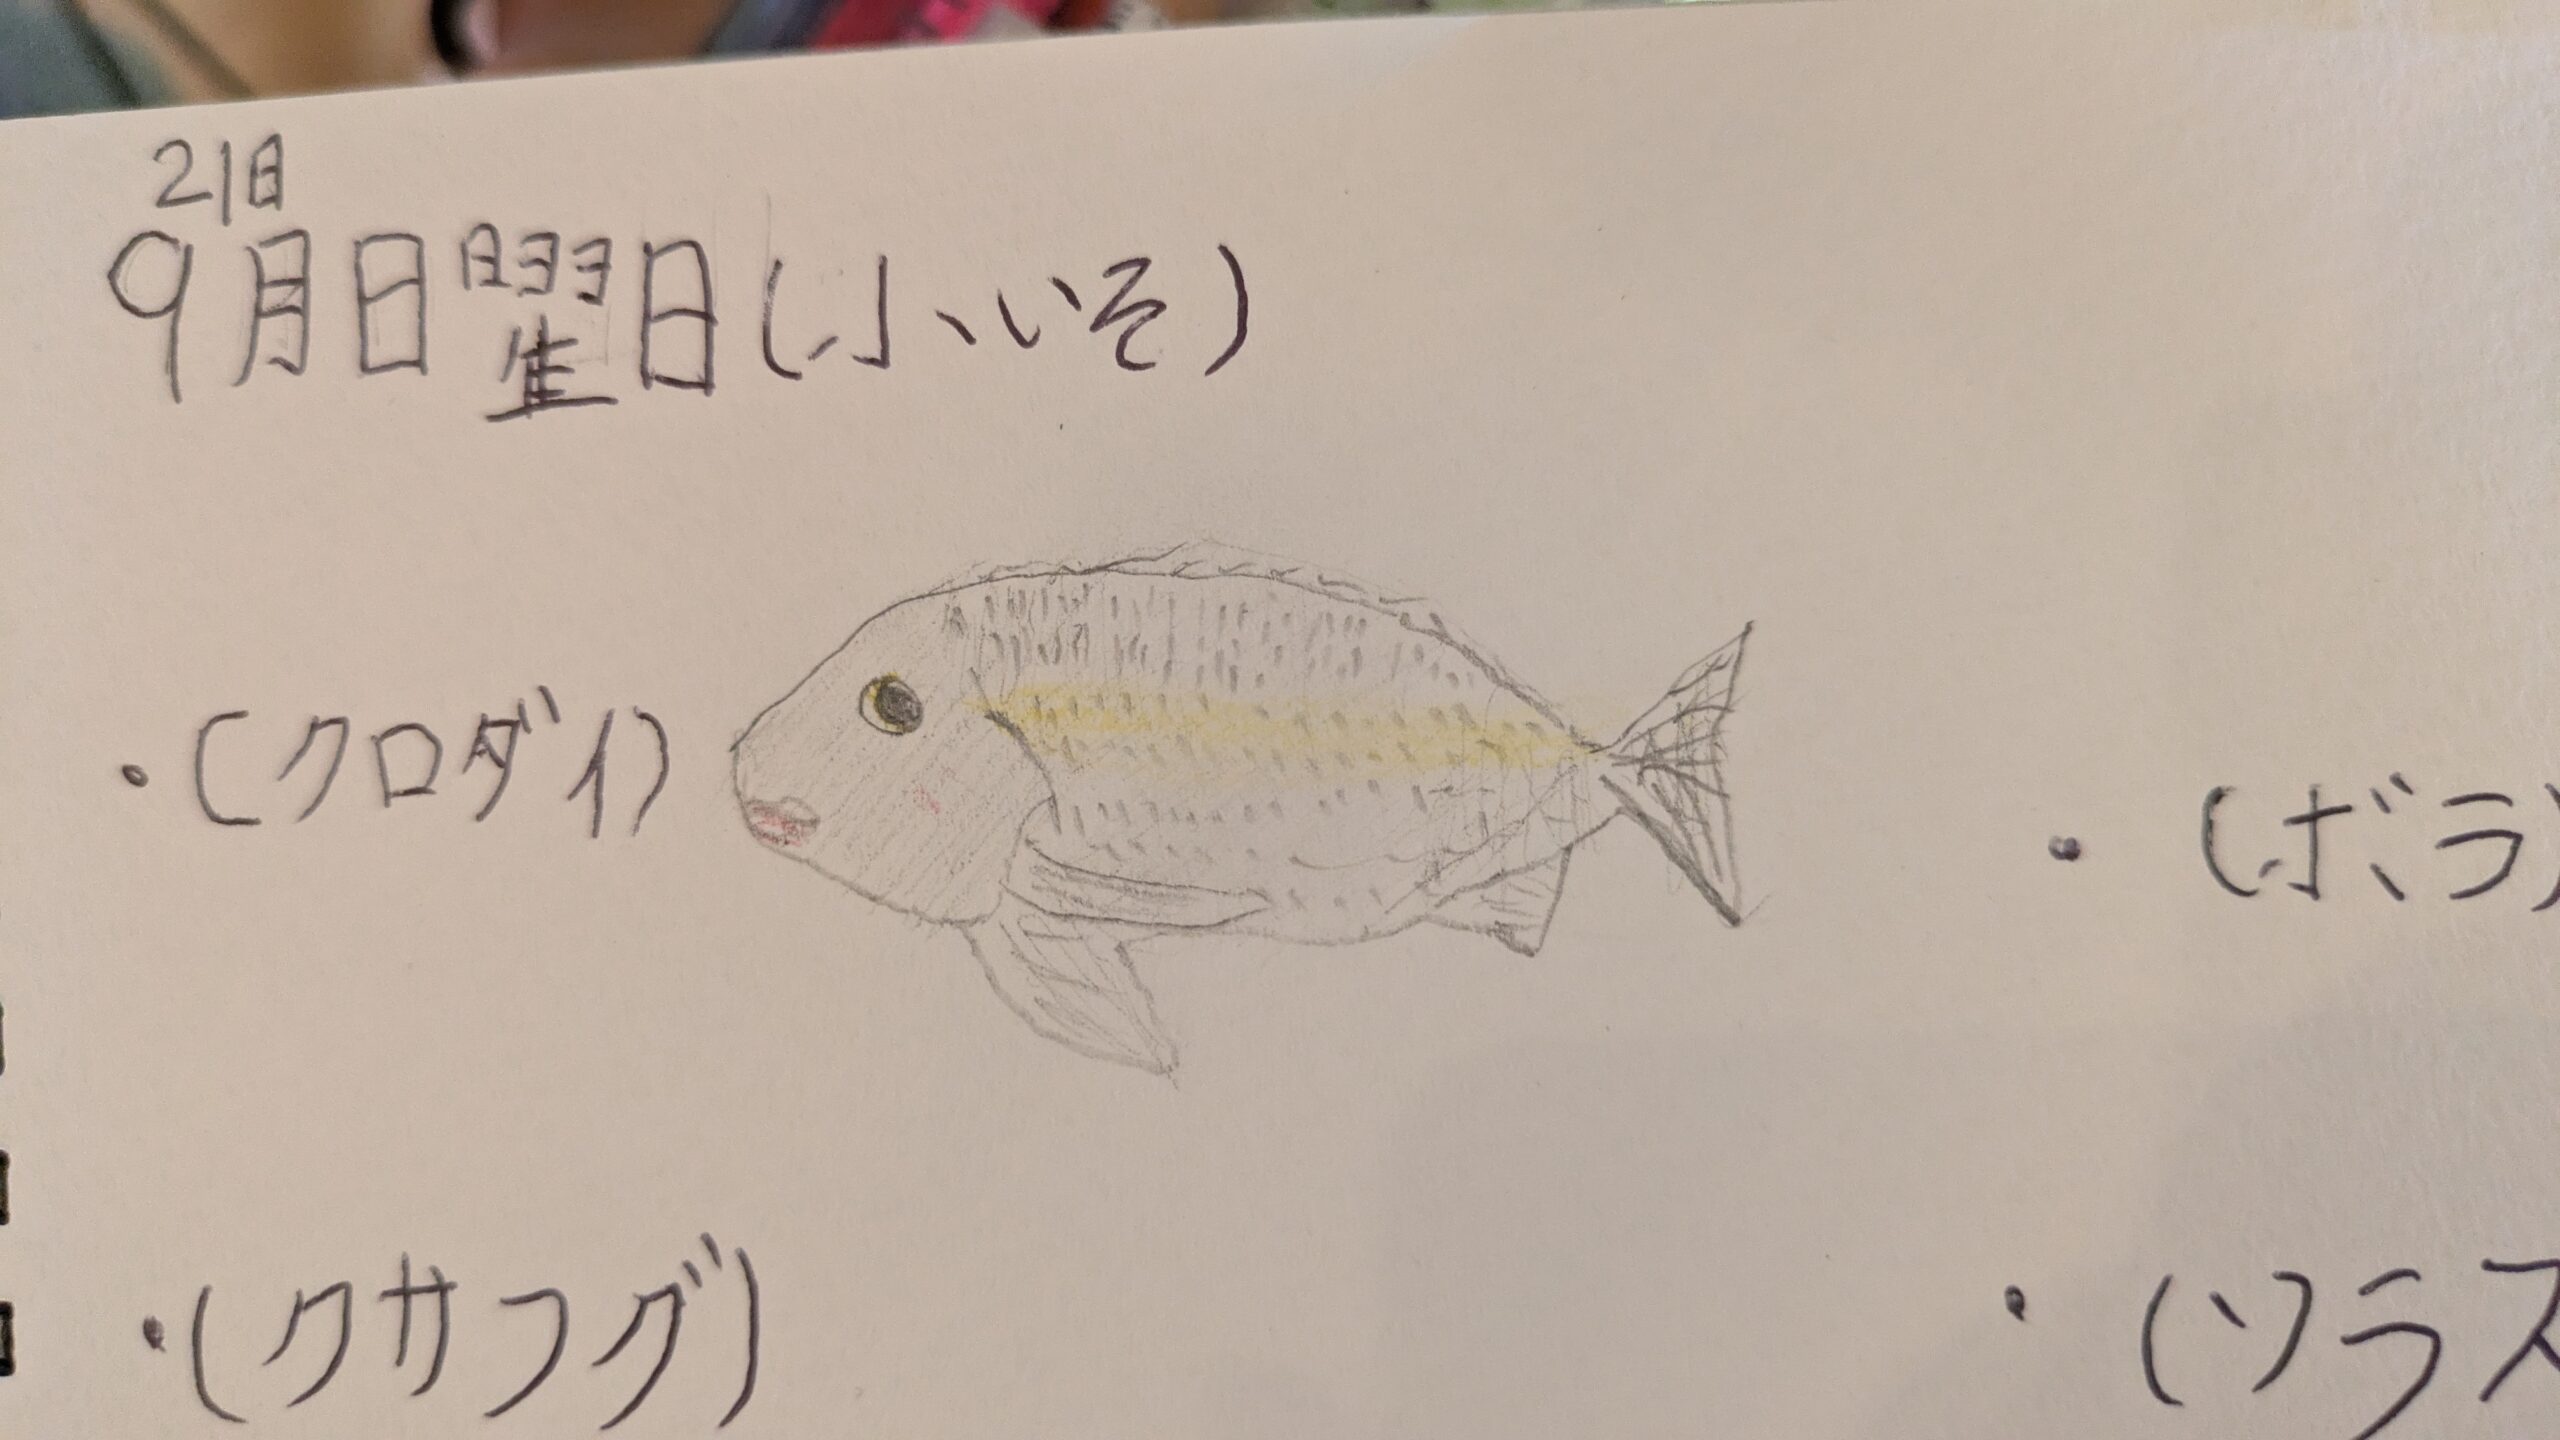 21日
9月日曜日(小いそ)
・(クロダイ)
・(ボラ)
・(クサフグ)
・(ソラス